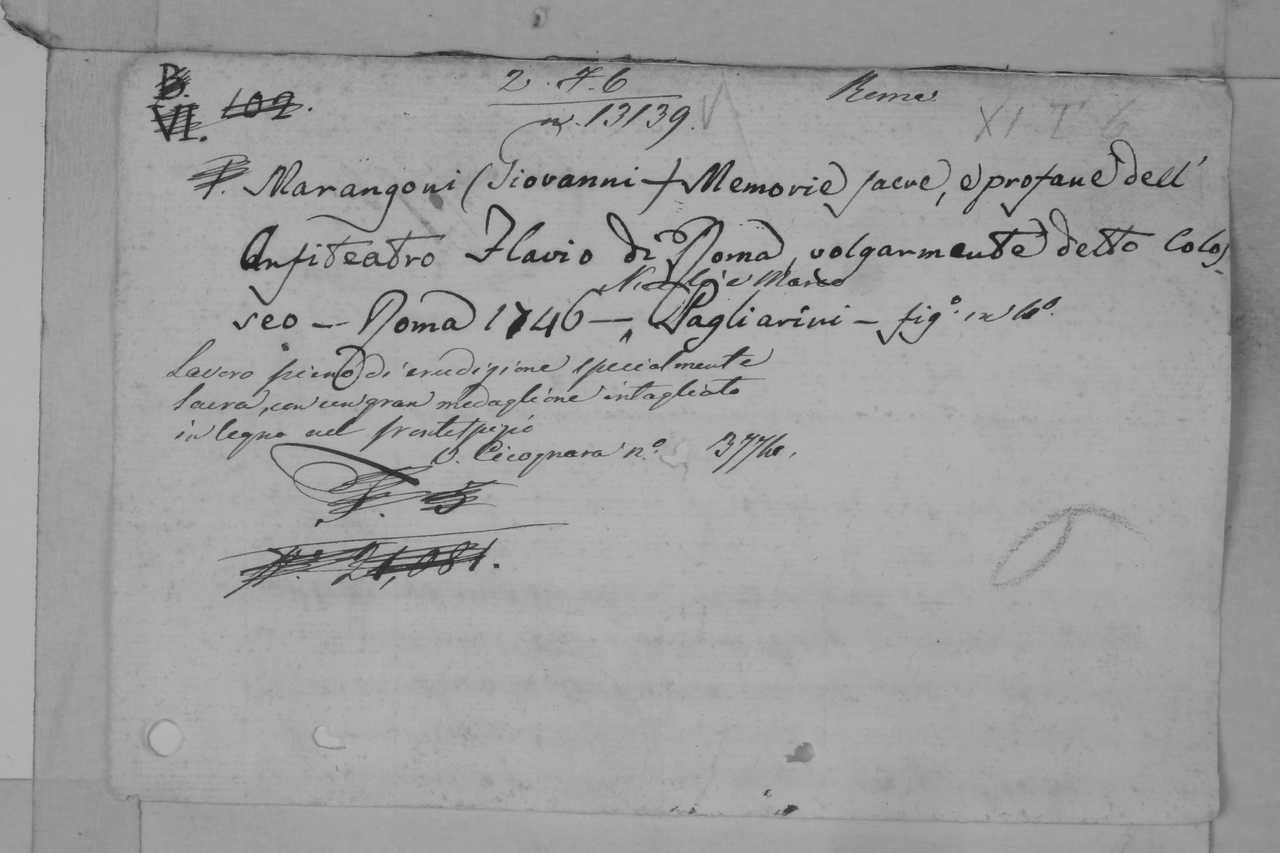 B. 2. 7. 6 Roma
VI. 102. n. 13139. XI T 6
P. Marangoni (Giovanni) Memorie sacre, e profane dell'
Anfiteatro Flavio di Roma, volgarmente detto Colos-
Nicolò e Marco
seo — Roma 1746 — Pagliarini — fig.° in 4°.
Lavoro pieno di erudizione specialmente
sacra, con un gran medaglione intagliato
in legno nel frontespizio
V. Cicognara n.° 3774.
F. 5
N.° 21,081.